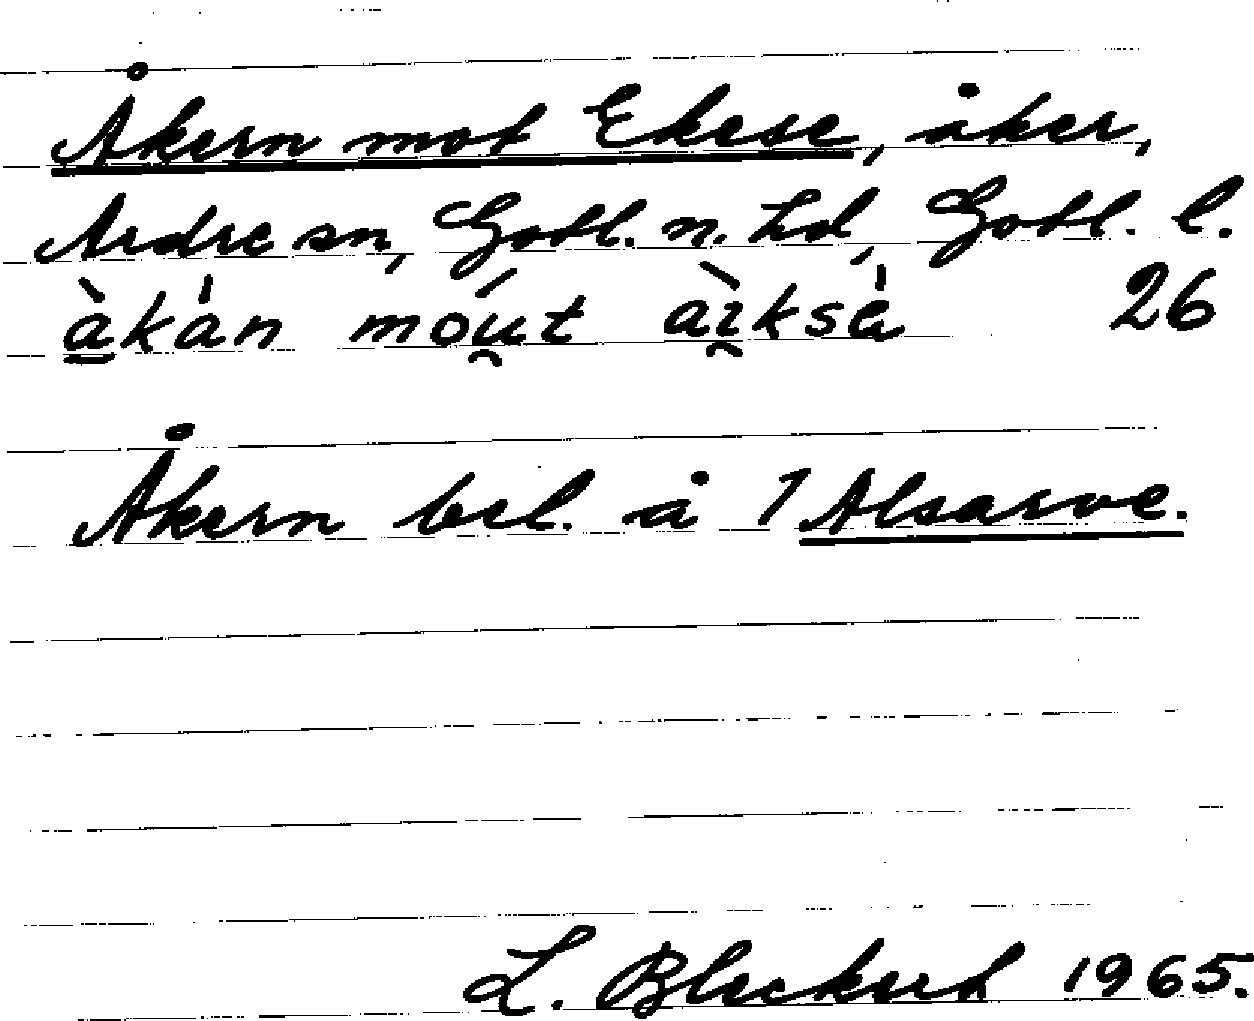 Åkern mot Ekese, åker,
Ardre sn, Gotl. n. hd, Gotl. l.
àkán móut àiksè 26
Åkern bel. å 1 Alsarve.
L. Bleckert 1965.